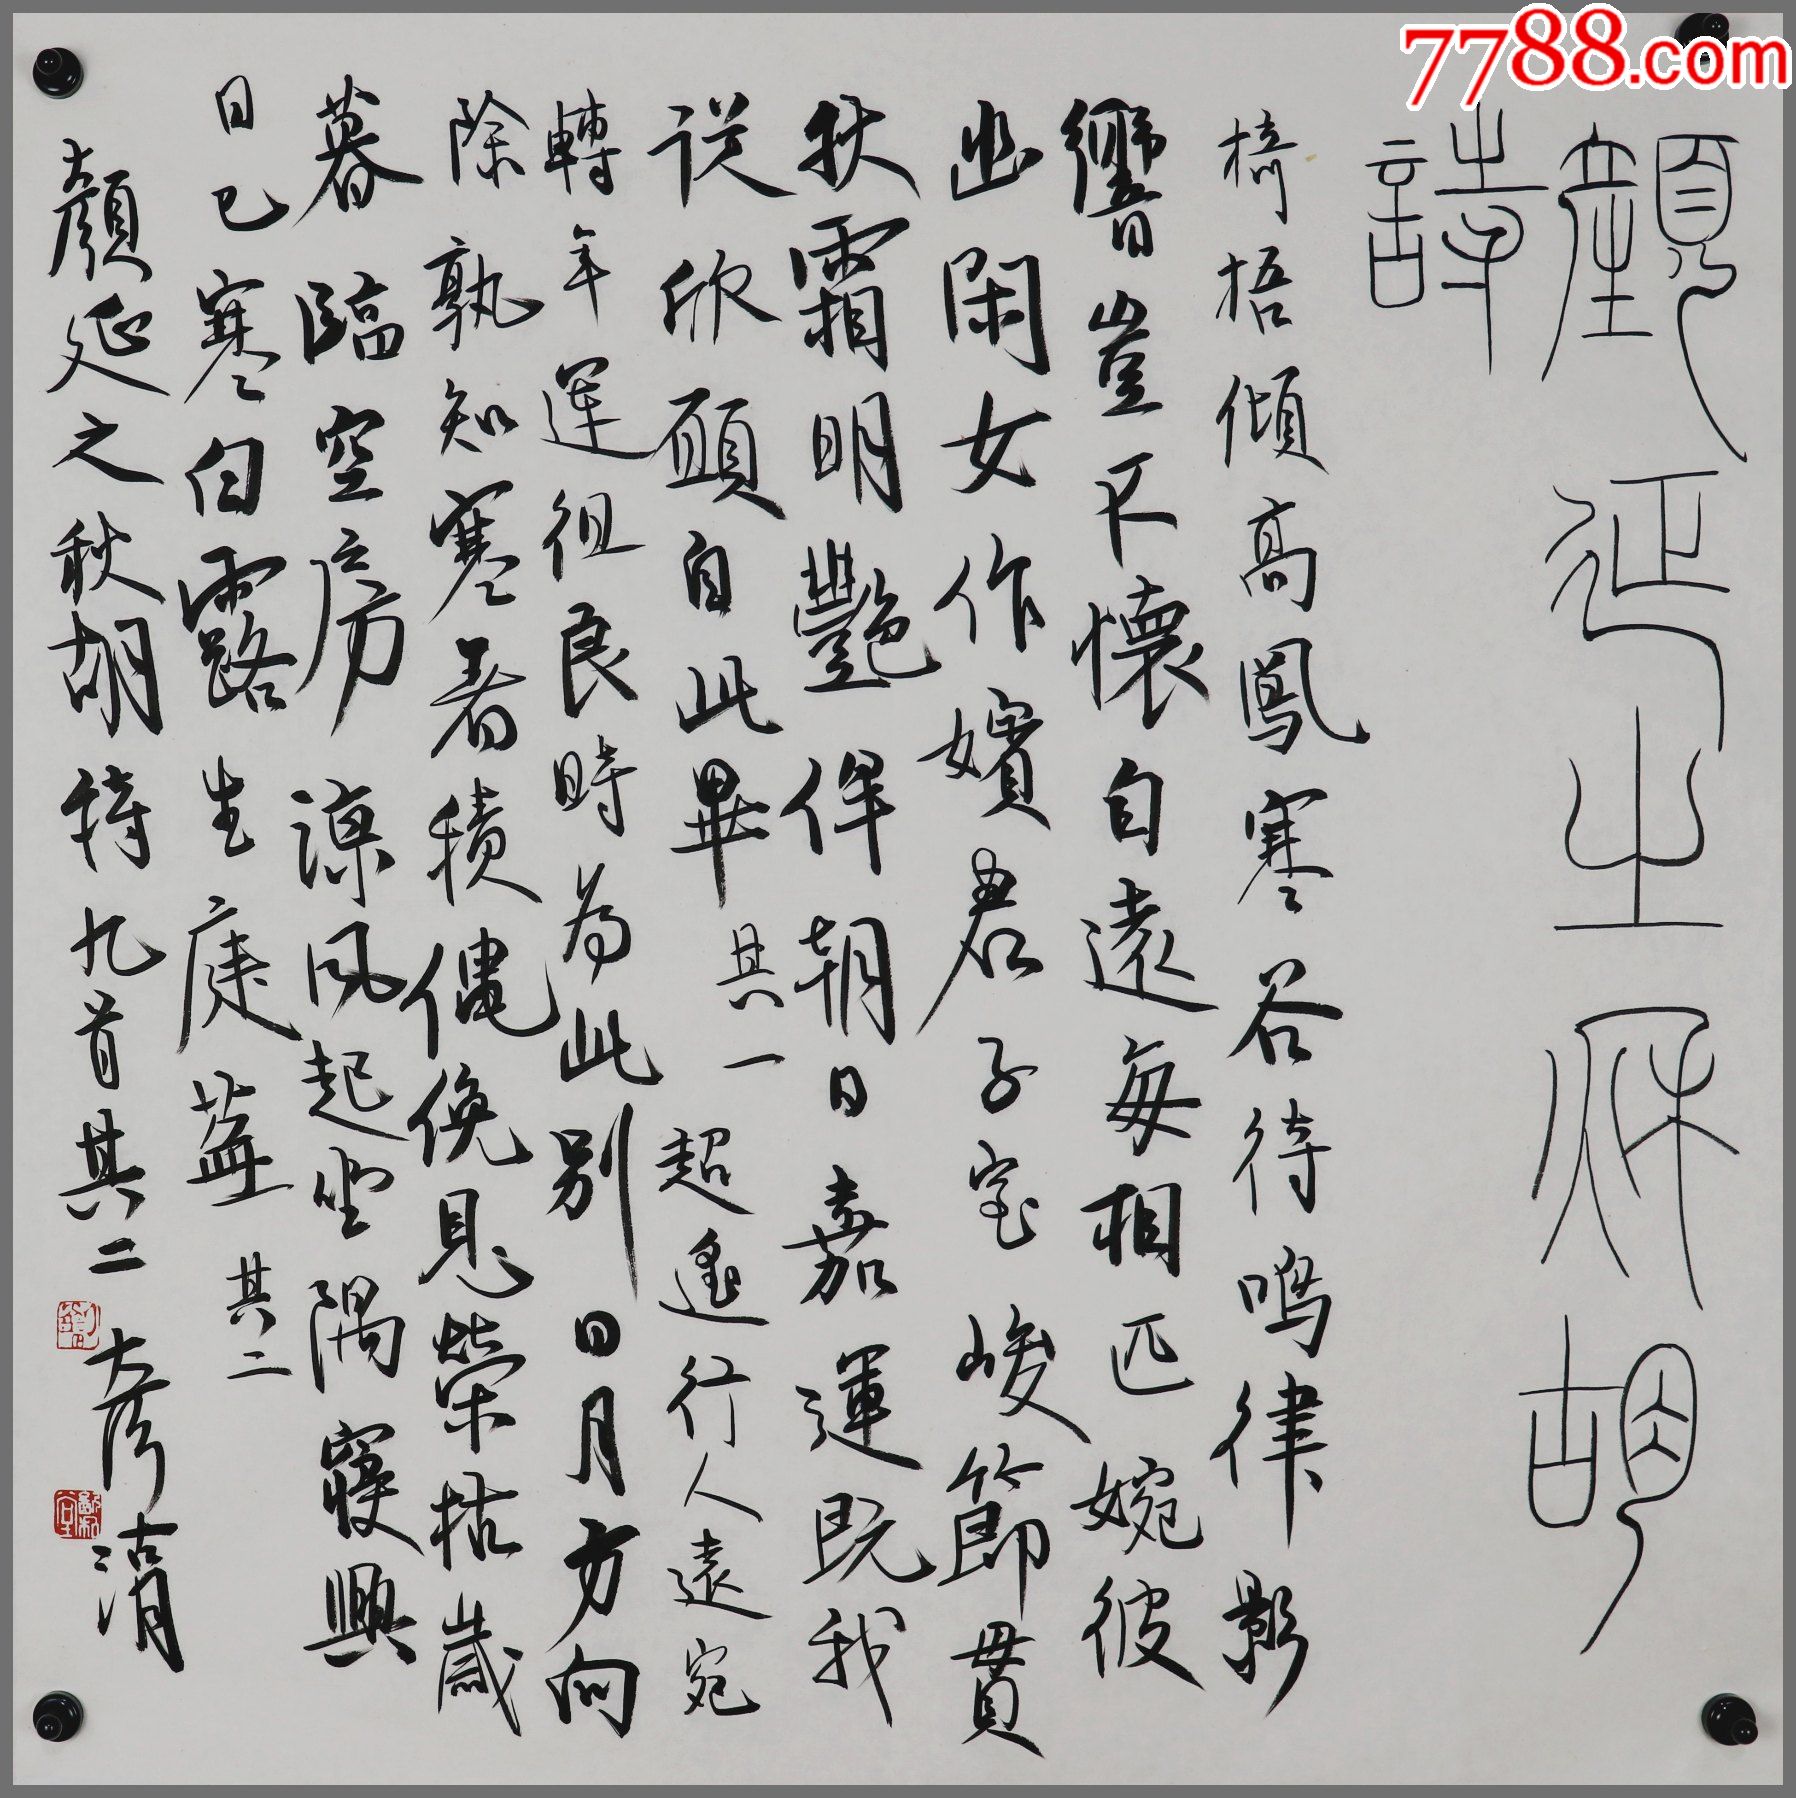 7788.com
顏延之秋胡
詩
椅梧傾高鳳寒谷待鳴律影
響豈不懷自遠每相匹婉彼
幽閑女作嬪君子室峻節貫
秋霜明艷侔朝日嘉運既我
從欣願自此畢其一超遙行人遠宛
轉年運徂良時為此別日月方向
除孰知寒暑積僶俛見榮枯歲
暮臨空房涼風起坐隅寢興
日已寒白露生庭蕪其二
顏延之秋胡詩九首其二